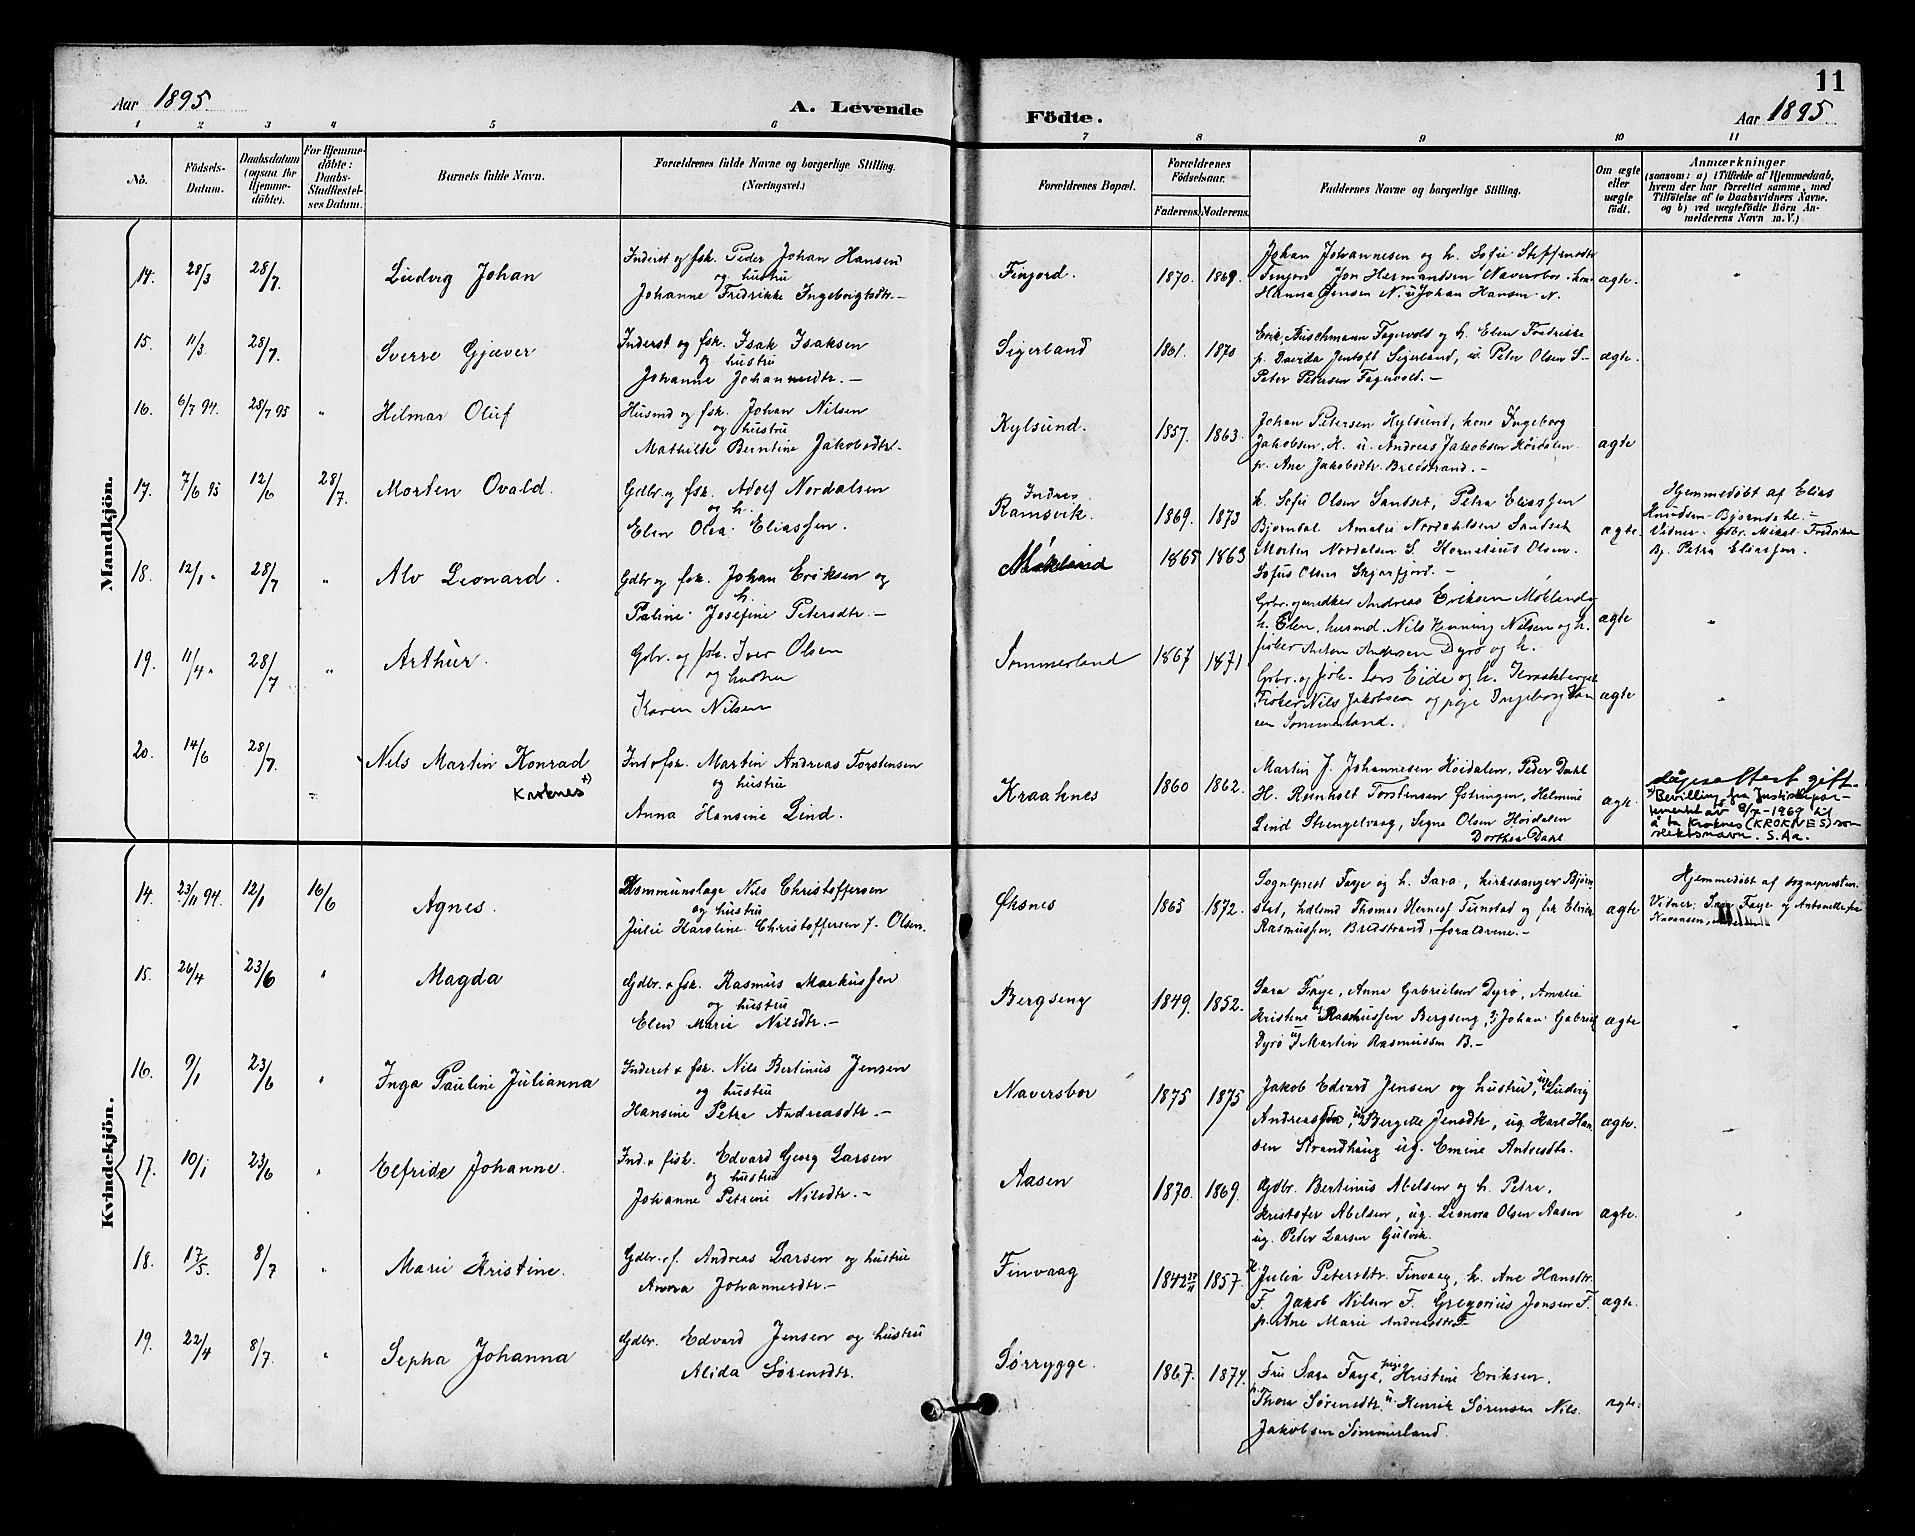 11
Aar 1895.
A. Levende
Födte.
Aar 1895.
1 2 3 4 5 6 7 8 9 10 11
No.
Födsels-
Datum.
Daabsdatum
(ogsaa for
Hjemme-
döbte).
For Hjemme-
döbte:
Daabs-
Stadfestel-
ses Datum.
Barnets fulde Navn.
Forældrenes fulde Navne og borgerlige Stilling.
(Næringsvei.)
Forældrenes Bopæl.
Forældrenes
Födselsaar.
Faderens. Moderens.
Faddernes Navne og borgerlige Stilling.
Om ægte
eller
uægte
født.
Anmærkninger
(saasom: a) i Tilfælde af Hjemmedaab,
hvem der har forrettet samme, med
Tilföielse af to Daabsvidners Navne,
og b) ved uægtefödte Börn An-
melderens Navn m. V.)
Mandkjön.
14. 28/3 28/7. Ludvig Johan
Inderst og fsk. Peder Johan Hansen
og hustru
Johanne Fredrikke Ingebrigtsdtr. -
Finfjord. 1870. 1869.
Johan Johannesen og h. Sofie
Jon Hermandsen Naversbor
Hanna Jensen N. Johan Hansen N.
ægte.
15. 11/3 28/7. Sverre Gjæver
Inderst og fsk. Isak Isaksen
og hustru
Johanne Johannesdtr. -
Sigerland 1861. 1870
Erik Buschmann Fagervold og h. Elen Fredrikke
p. Davida Jentoft Sigerland, u. Peter Olsen S-
Peter Petersen Fagervold. -
ægte.
16. 6/7 94. 28/7 95 " Hilmar Oluf
Husmd og fsk. Johan Nilsen
og hustru
Mathilde Berntine Jakobsdtr. -
Kylsund. 1857. 1863.
Johan Petersen Hylsund, kone Ingeborg
Jakobsen, H. u. Andreas Jakobsen Höidalen
p. Ane Jakobsdtr. Bredstrand. -
ægte
17. 7/6 95 12/6 28/7. Morten Ovald.
Gdbr. og fsk. Adolf Nordalsen
og h.
Elen Olea Eliassen.
Indre
Ramsvik. 1869. 1873
k. Sofie Olsen Sandset, Petra Eliassen
Bjørndal, Amalie Nordahlsen Sandset
Morten Nordalsen S. Kornelius Olsen.
Sofus Olsen Skjærfjord. -
ægte.
Hjemmedøbt af Elias
Knudsen Bjørndal. -
Vidner: Gdbr. Mikal Fredriksen
Bj. Petra Eliassen.
18. 12/1 " 28/7 " Alv Leonard.
Gdbr og fsk. Johan Eriksen og
h.
Paline Josefine Petersdtr. -
Mökland 1865 1863
Andreas Eriksen Mökland og
h. Elen, husmd. Nils Henning Nilsen og h.
fisker Anton Andersen Dyrø og h.
ægte
"
19. 11/4 " 28/7 " Arthur.
Gdbr. og fsk. Iver Olsen
og hustru
Karen Nilsen
Sommerland 1867 1871
Gdbr. og fisk. Lars Eide og h. Kraakberget
Fisker Nils Jakobsen og pige Ingeborg Han
sen Sommerland.
ægte
"
20. 14/6 28/7. Nils Martin Konrad
Kroknes +)
Ind. og fsk. Martin Andreas Torstensen
og hustru
Anna Hansine Lind.
Kraaknes 1860 1862.
Martin J. Johannesen Höidalen, Peder Dahl
H. Reinholt Torstensen Østringen, Helmine
Lind Strengelvaag, Signe Olsen Höidalen
Dorthea Dahl
ægte.
+) Bevilling fra Justisdepar-
tementet av 8/7-1969 til
å ta Kroknes (KROKNES) som
slektsnavn. S.Aa.
Kvindekjön.
14. 23/11 94. 12/1 16/6 Agnes.
Kommunelæge Nils Christoffersen
og hustru
Julie Karoline Christoffersen f. Olsen.
Øksnes 1865 1872.
Sogneprest Faye og h. Sara, kirkesanger Bjørn
stad, hdlsmd Thomas Hernes Tunstad og frk Elvine
Rasmussen, Bredstrand, forældrene. -
ægte
Hjemmedøbt af sognepresten.
Vidner: Sara Faye og
15. 26/4 23/6 " Magda
Gdbr. + fsk. Rasmus Markussen
og hustru
Elen Marie Nilsdtr. -
Bergseng 1849. 1852.
Sara Faye, Anne Gabrielsen Dyrø, Amalie
Kristine Rasmussen Bergseng, Johan Gabriel
Dyrø Martin Rasmussen B. -
ægte
"
16. 9/1 23/6 " Inga Pauline Julianna
Inderst + fsk. Nils Bertinus Jensen
og hustru
Hansine Petra Andreasdtr. -
Naversbor 1875 1875
Jakob Edvard Jensen og hustru, Ludvig
Andreassen, Bergitte Jensdtr, ug. Karl Han
sen Strandhaug ug. Emine Andresdtr.
ægte.
17. 10/1 23/6 " Elfride Johanne.
Ind. + fisk. Edvard Georg Larsen
og hustru
Johanne Petrine Nilsdtr. -
Aasen 1870. 1869.
Gdbr. Bertinus Abelsen og h. Petra,
Kristofer Abelsen, ug. Leonora Olsen Aasen
ug. Peter Larsen Gulvik.
ægte.
"
18. 17/5. 8/7 " Marie Kristine.
Gdbr. + f. Andreas Larsen og hustru
Anna Johannesdtr. -
Finvaag 1842 1857.
Julia Petersdtr. Finvaag, h. Ane Hansdtr.
F. Jakob Nilsen F. Gregorius Jonsen F.
p. Ane Marie Andreasdtr F.
ægte.
19. 22/4 8/7. " Sepha Johanna
Gdbr. Edvard Jensen og hustru
Alida Sörensdtr.
Sørrygge. 1867. 1874.
Fru Sara Faye, pige Kristine Eriksen.
Thora Sørensdtr. u. Henrik Sørensen Nils
Jakobsen Sommerland.
ægte.